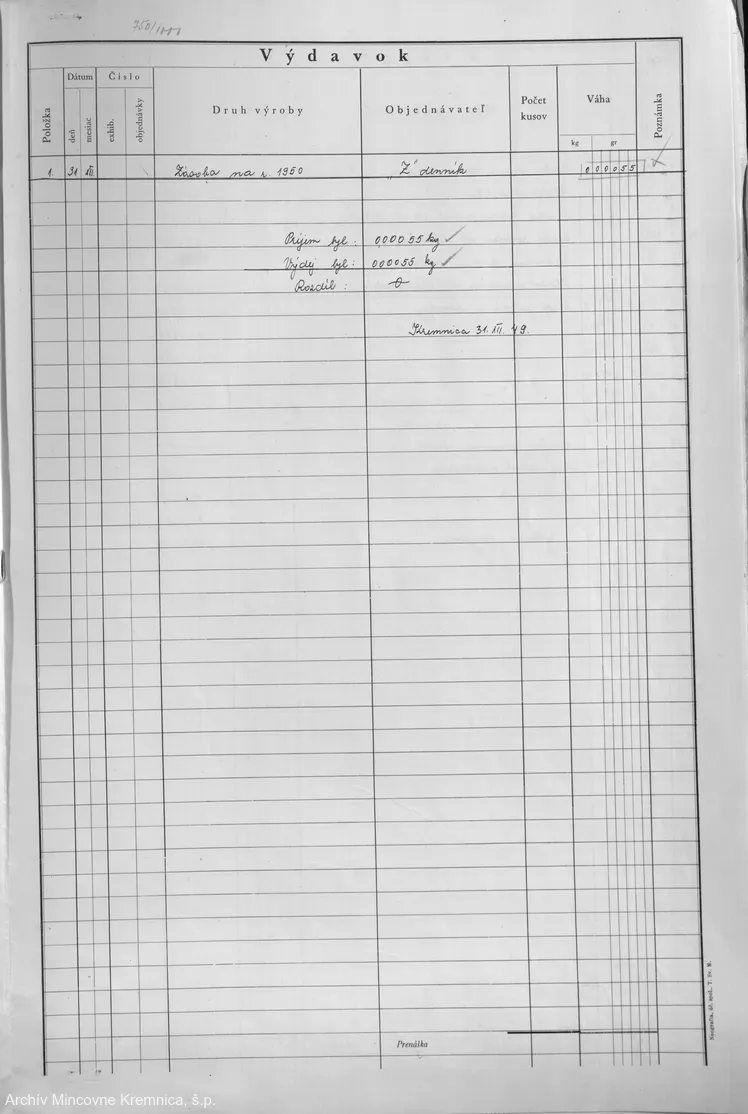 750/1000
Výdavok
Položka
Dátum
deň
mesiac
Číslo
exhib.
objednávky
Druh výroby
Objednávateľ
Počet kusov
Váha
kg gr
Poznámka
1. 31 XII. Zásoba na r. 1950 „Z" denník 000055
Príjem byl: 000055 kg
Výdej byl: 000055 kg
Rozdíl: 0
Kremnica 31. XII. 49.
Prenáška
Archív Mincovne Kremnica, š.p.